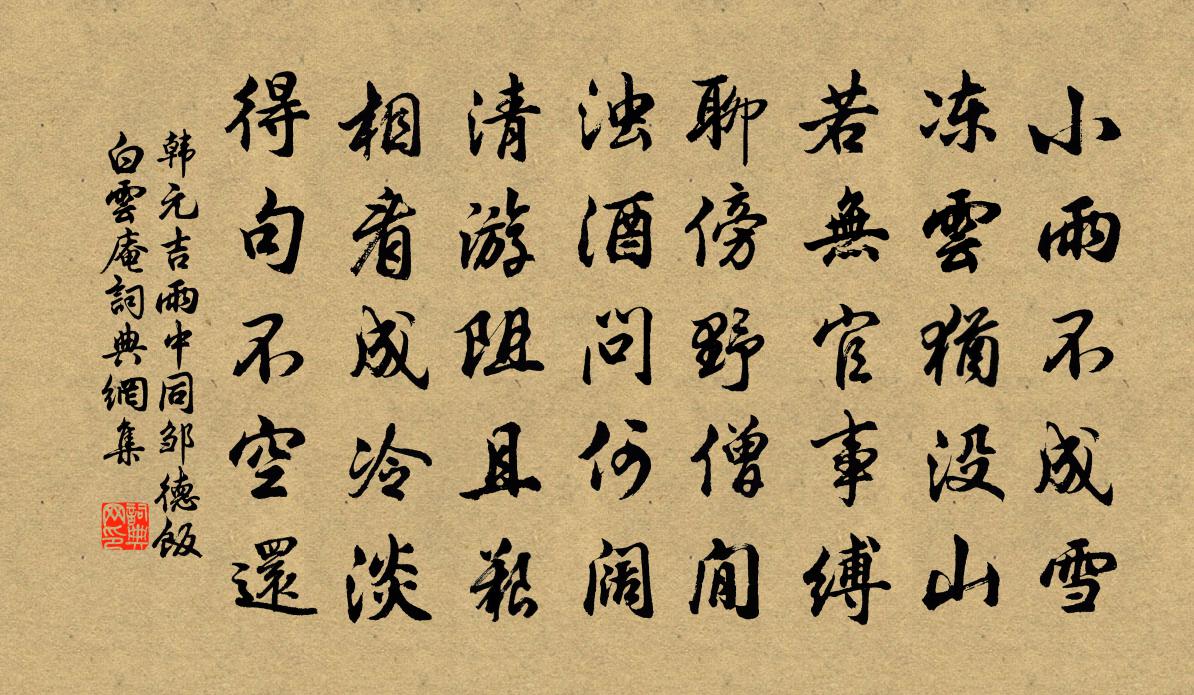 小雨不成雪
冻雲猶没山
若無官事縛
聊傍野僧閒
浊酒问何阔
清游阻且艱
相看成冷淡
得句不空還
韩元吉雨中同邹德飯
白雲庵詞典網集
詞典网印